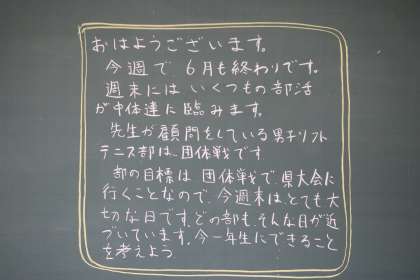 おはようございます。
今週で、6月も終わりです。
週末には いくつもの部活
が中体連に臨みます。
先生が顧問をしている男子ソフト
テニス部は、団体戦です
部の目標は 団体戦で、県大会に
行くことなので、今週末はとても大
切な日です。どの部も、そんな日が近
づいています。今一年生にできること
を考えよう